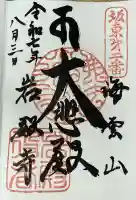 坂東第二番
海雲山
大悲殿
岩殿寺
令和七年
八月三日